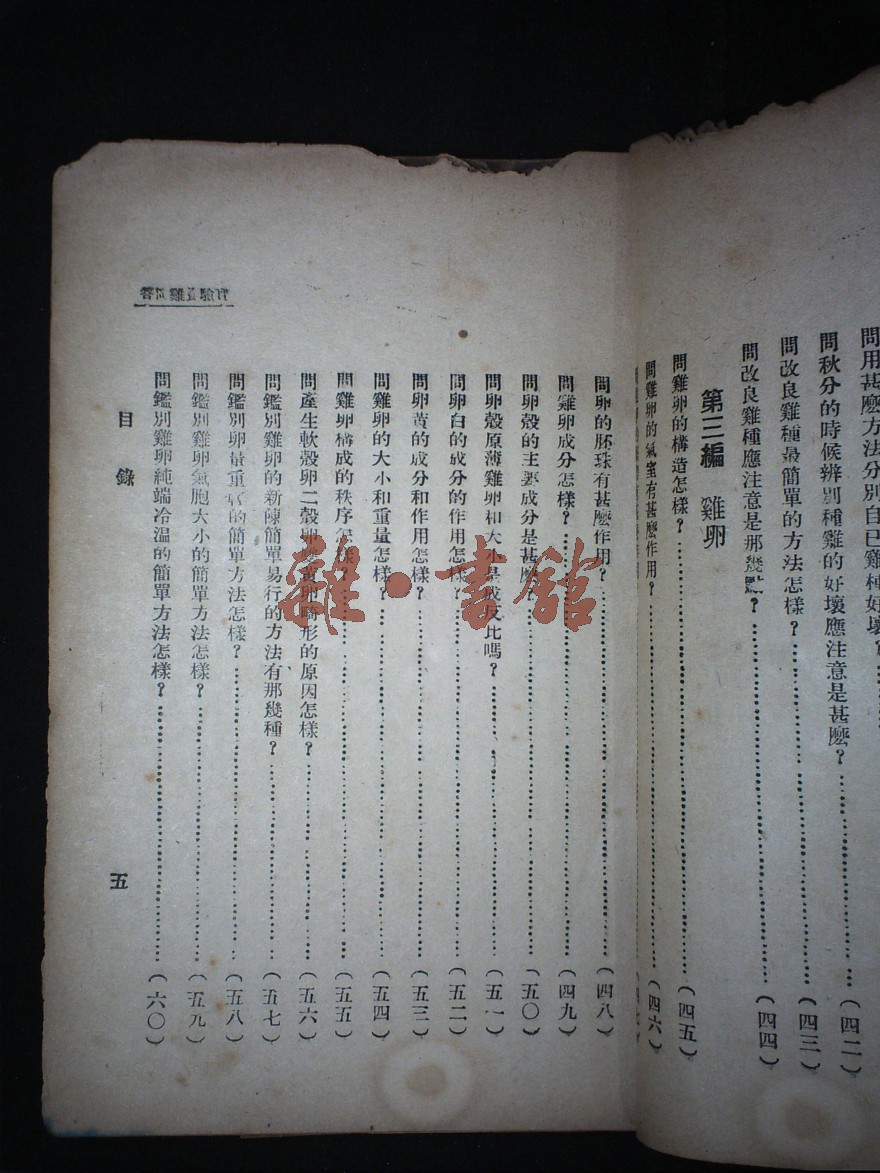 問用甚麽方法分別自己雞種好壞?
問秋分的時候辨別種雞的好壞應注意是甚麽?(四二)
問改良雞種最簡單的方法怎樣?(四三)
問改良雞種應注意是那幾點?(四四)
第三編 雞卵
問雞卵的構造怎樣?(四五)
問雞卵的氣室有甚麽作用?(四六)
問卵的胚珠有甚麽作用?(四八)
問雞卵成分怎樣?(四九)
問卵殼的主要成分是甚麽?(五〇)
問卵殼原薄雞卵和大小是成反比嗎?(五一)
問卵白的成分的作用怎樣?(五二)
問卵黃的成分和作用怎樣?(五三)
問雞卵的大小和重量怎樣?(五四)
問雞卵構成的秩序怎樣?(五五)
問產生軟殼卵二殼卵 黃卵畸形的原因怎樣?(五六)
問鑑別雞卵的新陳簡單易行的方法有那幾種?(五七)
問鑑別卵量重 的簡單方法怎樣?(五八)
問鑑別雞卵氣胞大小的簡單方法怎樣?(五九)
問鑑別雞卵純端冷温的簡單方法怎樣?(六〇)
目錄
五
雜·書館